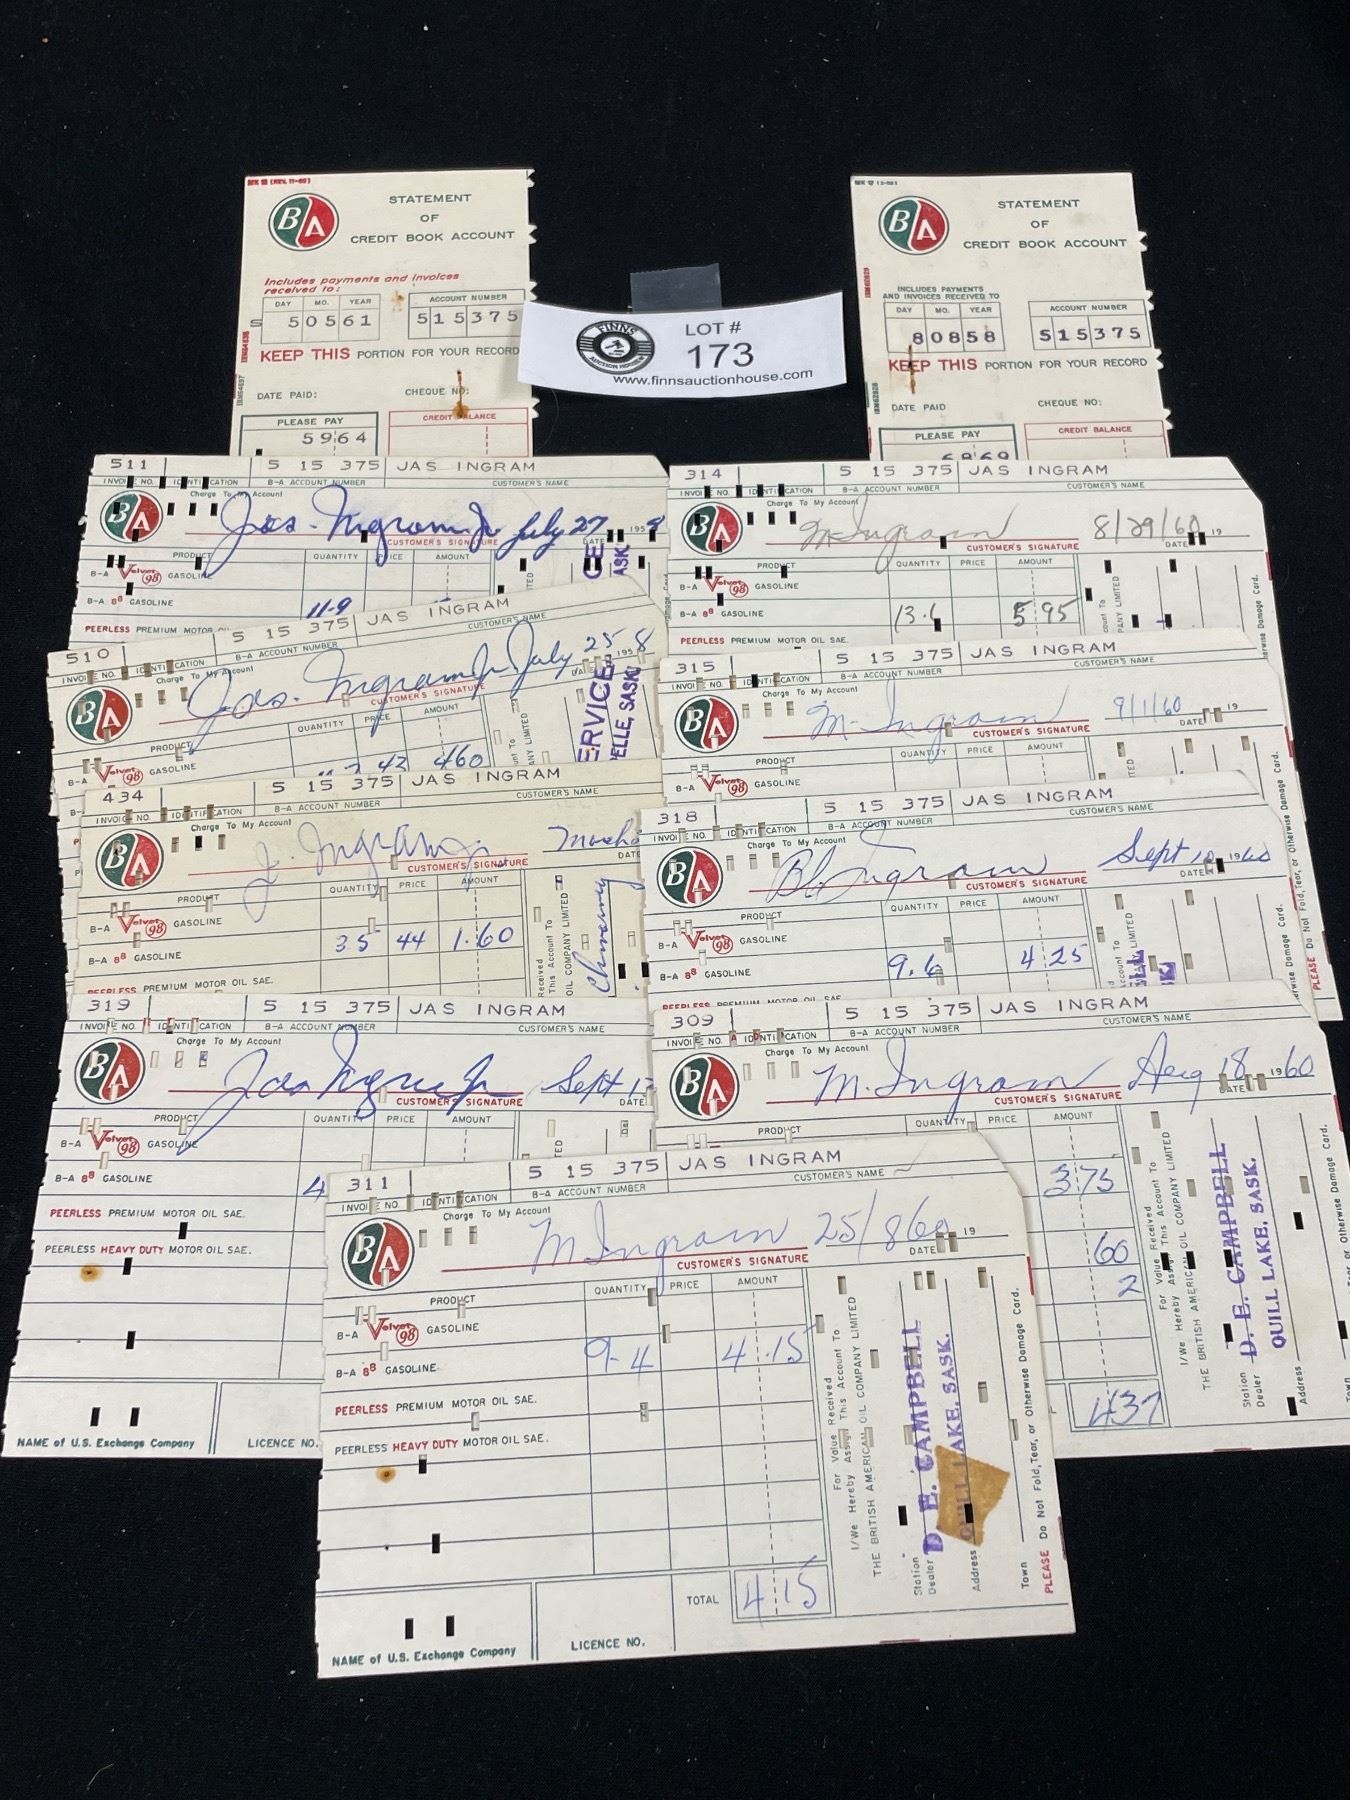 MK 12 (REV. 11-60)
BA
STATEMENT
OF
CREDIT BOOK ACCOUNT
Includes payments and invoices
received to:
DAY MO. YEAR
ACCOUNT NUMBER
5 0 5 6 1
5 1 5 3 7 5
KEEP THIS PORTION FOR YOUR RECORD
DATE PAID: CHEQUE NO:
PLEASE PAY
CREDIT BALANCE
59 64
FINNS
AUCTION HOUSE
LOT #
173
www.finnsauctionhouse.com
BA
STATEMENT
OF
CREDIT BOOK ACCOUNT
INCLUDES PAYMENTS
AND INVOICES RECEIVED TO
DAY MO. YEAR
ACCOUNT NUMBER
8 0 8 5 8
5 1 5 3 7 5
KEEP THIS PORTION FOR YOUR RECORD
DATE PAID CHEQUE NO:
PLEASE PAY
CREDIT BALANCE
68 69
511 5 15 375 JAS INGRAM
INVOICE NO. IDENTIFICATION B-A ACCOUNT NUMBER CUSTOMER'S NAME
BA
Charge To My Account
Jas. Ingram Jr July 27 195
CUSTOMER'S SIGNATURE DATE
PRODUCT QUANTITY PRICE AMOUNT
B-A Velvet 98 GASOLINE
B-A 88 GASOLINE 11.9
PEERLESS PREMIUM MOTOR
ASK.
510 5 15 375 JAS INGRAM
INVOICE NO. IDENTIFICATION B-A ACCOUNT NUMBER CUSTOMER'S NAME
BA
Charge To My Account
Jas. Ingram Jr July 25 195 8
CUSTOMER'S SIGNATURE
PRODUCT QUANTITY PRICE AMOUNT
B-A Velvet 98 GASOLINE 42 460
ERVICE
ELLE, SASK.
434 5 15 375 JAS INGRAM
INVOICE NO. IDENTIFICATION B-A ACCOUNT NUMBER CUSTOMER'S NAME
BA
Charge To My Account
J. Ingram
CUSTOMER'S SIGNATURE DATE
PRODUCT QUANTITY PRICE AMOUNT
B-A Velvet 98 GASOLINE 35 44 1.60
B-A 88 GASOLINE
PEERLESS PREMIUM MOTOR OIL SAE.
Received
This Account To
OIL COMPANY LIMITED
319 5 15 375 JAS INGRAM
INVOICE NO. IDENTIFICATION B-A ACCOUNT NUMBER CUSTOMER'S NAME
BA
Charge To My Account
Jas Ingram Jr Sept
CUSTOMER'S SIGNATURE DATE
PRODUCT QUANTITY PRICE AMOUNT
B-A Velvet 98 GASOLINE
B-A 88 GASOLINE 4
PEERLESS PREMIUM MOTOR OIL SAE.
PEERLESS HEAVY DUTY MOTOR OIL SAE.
NAME of U.S. Exchange Company LICENCE NO.
314 5 15 375 JAS INGRAM
INVOICE NO. IDENTIFICATION B-A ACCOUNT NUMBER CUSTOMER'S NAME
BA
Charge To My Account
M Ingram 8/29/60 19
CUSTOMER'S SIGNATURE DATE
PRODUCT QUANTITY PRICE AMOUNT
B-A Velvet 98 GASOLINE
B-A 88 GASOLINE 13.6 5 95
PEERLESS PREMIUM MOTOR OIL SAE.
315 5 15 375 JAS INGRAM
INVOICE NO. IDENTIFICATION B-A ACCOUNT NUMBER CUSTOMER'S NAME
BA
Charge To My Account
M- Ingram 9/1/60 19
CUSTOMER'S SIGNATURE DATE
PRODUCT QUANTITY PRICE AMOUNT
B-A Velvet 98 GASOLINE
318 5 15 375 JAS INGRAM
INVOICE NO. IDENTIFICATION B-A ACCOUNT NUMBER CUSTOMER'S NAME
BA
Charge To My Account
Ingram Sept 10 1960
CUSTOMER'S SIGNATURE DATE
PRODUCT QUANTITY PRICE AMOUNT
B-A Velvet 98 GASOLINE
B-A 88 GASOLINE 9.6 4 25
PLEASE Do Not Fold, Tear, or Otherwise Damage Card.
309 5 15 375 JAS INGRAM
INVOICE NO. IDENTIFICATION B-A ACCOUNT NUMBER CUSTOMER'S NAME
BA
Charge To My Account
M. Ingram Aug 18 1960
CUSTOMER'S SIGNATURE DATE
PRODUCT QUANTITY PRICE AMOUNT
3 75
60
2
4 37
For Value Received
I/We Hereby Assign This Account To
THE BRITISH AMERICAN OIL COMPANY LIMITED
Station
Dealer
D. E. CAMPBELL
QUILL LAKE, SASK.
Address
Town
311 5 15 375 JAS INGRAM
INVOICE NO. IDENTIFICATION B-A ACCOUNT NUMBER CUSTOMER'S NAME
BA
Charge To My Account
M Ingram 25/8 60 19
CUSTOMER'S SIGNATURE DATE
PRODUCT QUANTITY PRICE AMOUNT
B-A Velvet 98 GASOLINE
B-A 88 GASOLINE 9.4 4.15
PEERLESS PREMIUM MOTOR OIL SAE.
PEERLESS HEAVY DUTY MOTOR OIL SAE.
TOTAL 4 15
NAME of U.S. Exchange Company LICENCE NO.
For Value Received
I/We Hereby Assign This Account To
THE BRITISH AMERICAN OIL COMPANY LIMITED
Station
Dealer
D. E. CAMPBELL
QUILL LAKE, SASK.
Address
Town
PLEASE Do Not Fold, Tear, or Otherwise Damage Card.